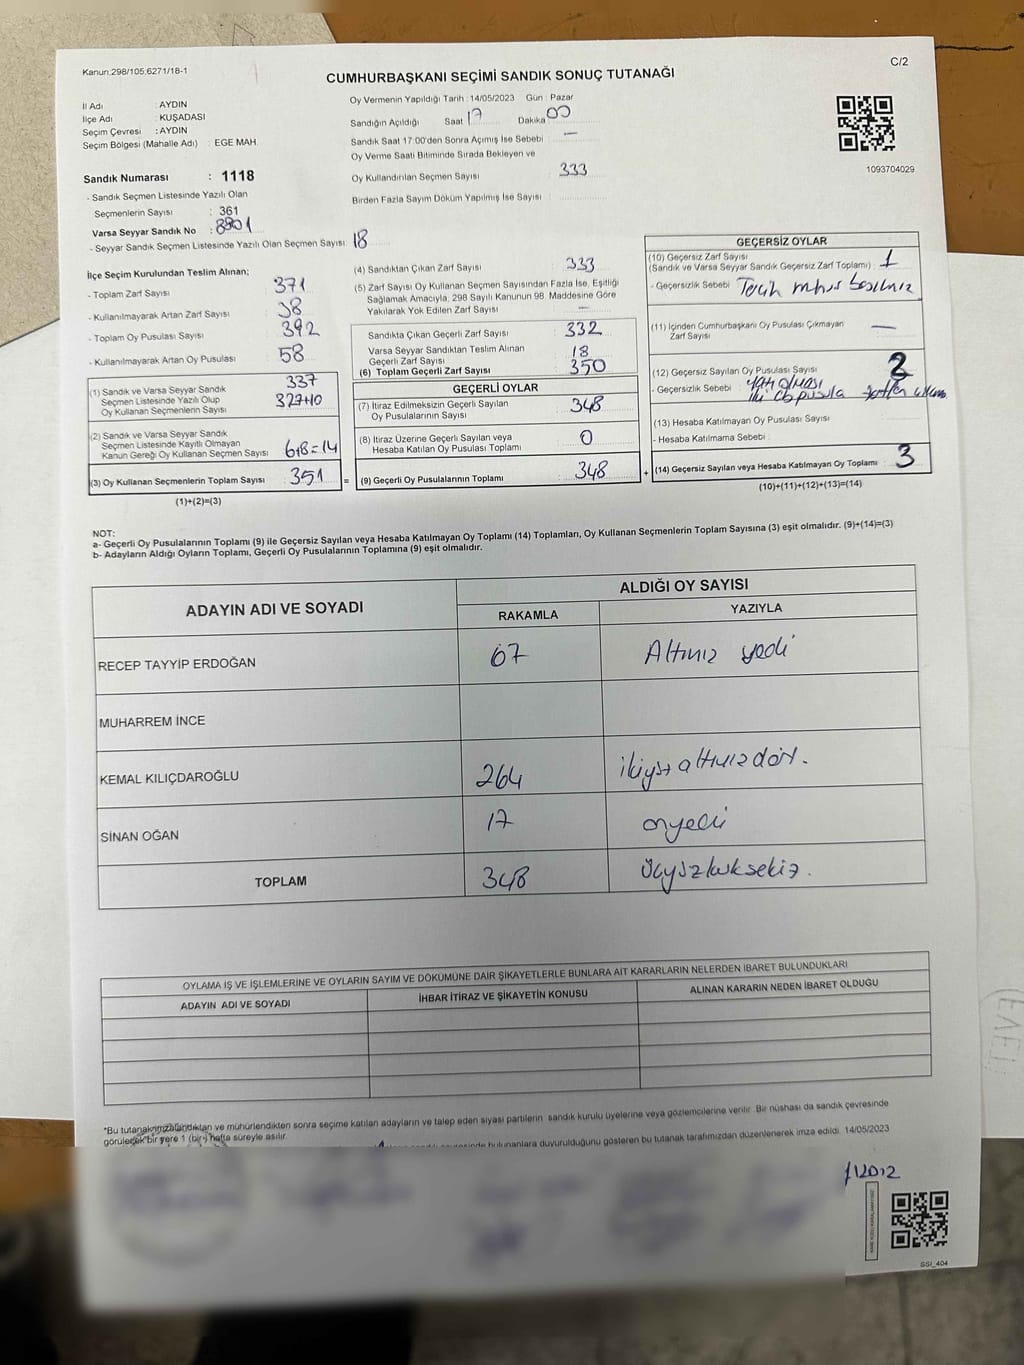 Kanun:298/105,6271/18-1
C/2
CUMHURBAŞKANI SEÇİMİ SANDIK SONUÇ TUTANAĞI
İl Adı : AYDIN
İlçe Adı : KUŞADASI
Seçim Çevresi : AYDIN
Seçim Bölgesi (Mahalle Adı) : EGE MAH.
Sandık Numarası : 1118
- Sandık Seçmen Listesinde Yazılı Olan
Seçmenlerin Sayısı : 361
Varsa Seyyar Sandık No : 8801
- Seyyar Sandık Seçmen Listesinde Yazılı Olan Seçmen Sayısı: 18
Oy Vermenin Yapıldığı Tarih : 14/05/2023 Gün : Pazar
Sandığın Açıldığı Saat 17 Dakika 00
Sandık Saat 17:00'den Sonra Açımış İse Sebebi : —
Oy Verme Saati Bitiminde Sırada Bekleyen ve
Oy Kullandırılan Seçmen Sayısı : 333
Birden Fazla Sayım Döküm Yapılmış İse Sayısı :
1093704029
İlçe Seçim Kurulundan Teslim Alınan;
- Toplam Zarf Sayısı : 371
- Kullanılmayarak Artan Zarf Sayısı : 38
- Toplam Oy Pusulası Sayısı : 392
- Kullanılmayarak Artan Oy Pusulası : 58
(1) Sandık ve Varsa Seyyar Sandık
Seçmen Listesinde Yazılı Olup
Oy Kullanan Seçmenlerin Sayısı : 337
327+10
(2) Sandık ve Varsa Seyyar Sandık
Seçmen Listesinde Kayıtlı Olmayan
Kanun Gereği Oy Kullanan Seçmen Sayısı : 6+8=14
(3) Oy Kullanan Seçmenlerin Toplam Sayısı : 351
(1)+(2)=(3)
(4) Sandıktan Çıkan Zarf Sayısı : 333
(5) Zarf Sayısı Oy Kullanan Seçmen Sayısından Fazla İse, Eşitliği
Sağlamak Amacıyla, 298 Sayılı Kanunun 98. Maddesine Göre
Yakılarak Yok Edilen Zarf Sayısı : —
Sandıkta Çıkan Geçerli Zarf Sayısı : 332
Varsa Seyyar Sandıktan Teslim Alınan
Geçerli Zarf Sayısı : 18
(6) Toplam Geçerli Zarf Sayısı : 350
GEÇERLİ OYLAR
(7) İtiraz Edilmeksizin Geçerli Sayılan
Oy Pusulalarının Sayısı : 348
(8) İtiraz Üzerine Geçerli Sayılan veya
Hesaba Katılan Oy Pusulası Toplamı : 0
= (9) Geçerli Oy Pusulalarının Toplamı : 348
GEÇERSİZ OYLAR
(10) Geçersiz Zarf Sayısı
(Sandık ve Varsa Seyyar Sandık Geçersiz Zarf Toplamı) : 1
- Geçersizlik Sebebi :
(11) İçinden Cumhurbaşkanı Oy Pusulası Çıkmayan
Zarf Sayısı : —
(12) Geçersiz Sayılan Oy Pusulası Sayısı : 2
- Geçersizlik Sebebi : iki pusula
(13) Hesaba Katılmayan Oy Pusulası Sayısı :
- Hesaba Katılmama Sebebi :
+ (14) Geçersiz Sayılan veya Hesaba Katılmayan Oy Toplamı : 3
(10)+(11)+(12)+(13)=(14)
NOT:
a- Geçerli Oy Pusulalarının Toplamı (9) ile Geçersiz Sayılan veya Hesaba Katılmayan Oy Toplamı (14) Toplamları, Oy Kullanan Seçmenlerin Toplam Sayısına (3) eşit olmalıdır. (9)+(14)=(3)
b- Adayların Aldığı Oyların Toplamı, Geçerli Oy Pusulalarının Toplamına (9) eşit olmalıdır.
ADAYIN ADI VE SOYADI
ALDIĞI OY SAYISI
RAKAMLA YAZIYLA
RECEP TAYYİP ERDOĞAN 67 Altmış yedi
MUHARREM İNCE
KEMAL KILIÇDAROĞLU 264 ikiyüzaltmışdört.
SİNAN OĞAN 17 onyedi
TOPLAM 348 Üçyüzkırksekiz.
OYLAMA İŞ VE İŞLEMLERİNE VE OYLARIN SAYIM VE DÖKÜMÜNE DAİR ŞİKAYETLERLE BUNLARA AİT KARARLARIN NELERDEN İBARET BULUNDUKLARI
ADAYIN ADI VE SOYADI İHBAR İTİRAZ VE ŞİKAYETİN KONUSU ALINAN KARARIN NEDEN İBARET OLDUĞU
*Bu tutanak imzalandıktan ve mühürlendikten sonra seçime katılan adayların ve talep eden siyasi partilerin sandık kurulu üyelerine veya gözlemcilerine verilir. Bir nüshası da sandık çevresinde
görülecek bir yere 1 (bir) hafta süreyle asılır.
bulunanlara duyurulduğunu gösteren bu tutanak tarafımızdan düzenlenerek imza edildi. 14/05/2023
SSI_404